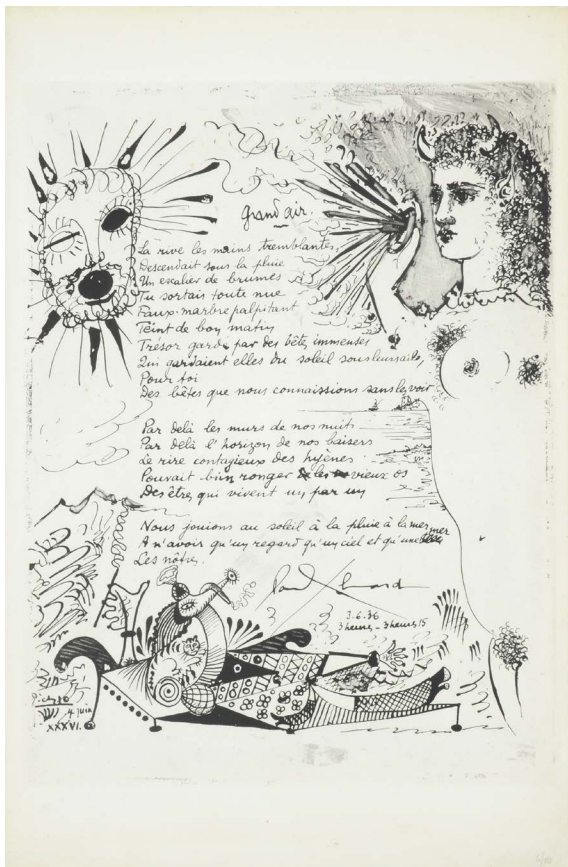 Grand air.
La rive les mains tremblantes,
Descendait sous la pluie
Un escalier de brumes
Tu sortais toute nue
Faux marbre palpitant
Teint de bon matin
Trésor gardé par des bêtes immenses
Qui gardaient elles du soleil sous leurs ailes,
Pour toi
Des bêtes que nous connaissions sans les voir
Par delà les murs de nos nuits
Par delà l'horizon de nos baisers
Le rire contagieux des hyènes
Pouvait bien ronger les vieux os
Des êtres qui vivent un par un
Nous jouions au soleil à la pluie à la mer
A n'avoir qu'un regard qu'un ciel et qu'une mer
Les nôtres.
Paul Eluard
3.6.36
3 heures - 3 heures 15
Picasso
4 juin
XXXVI.